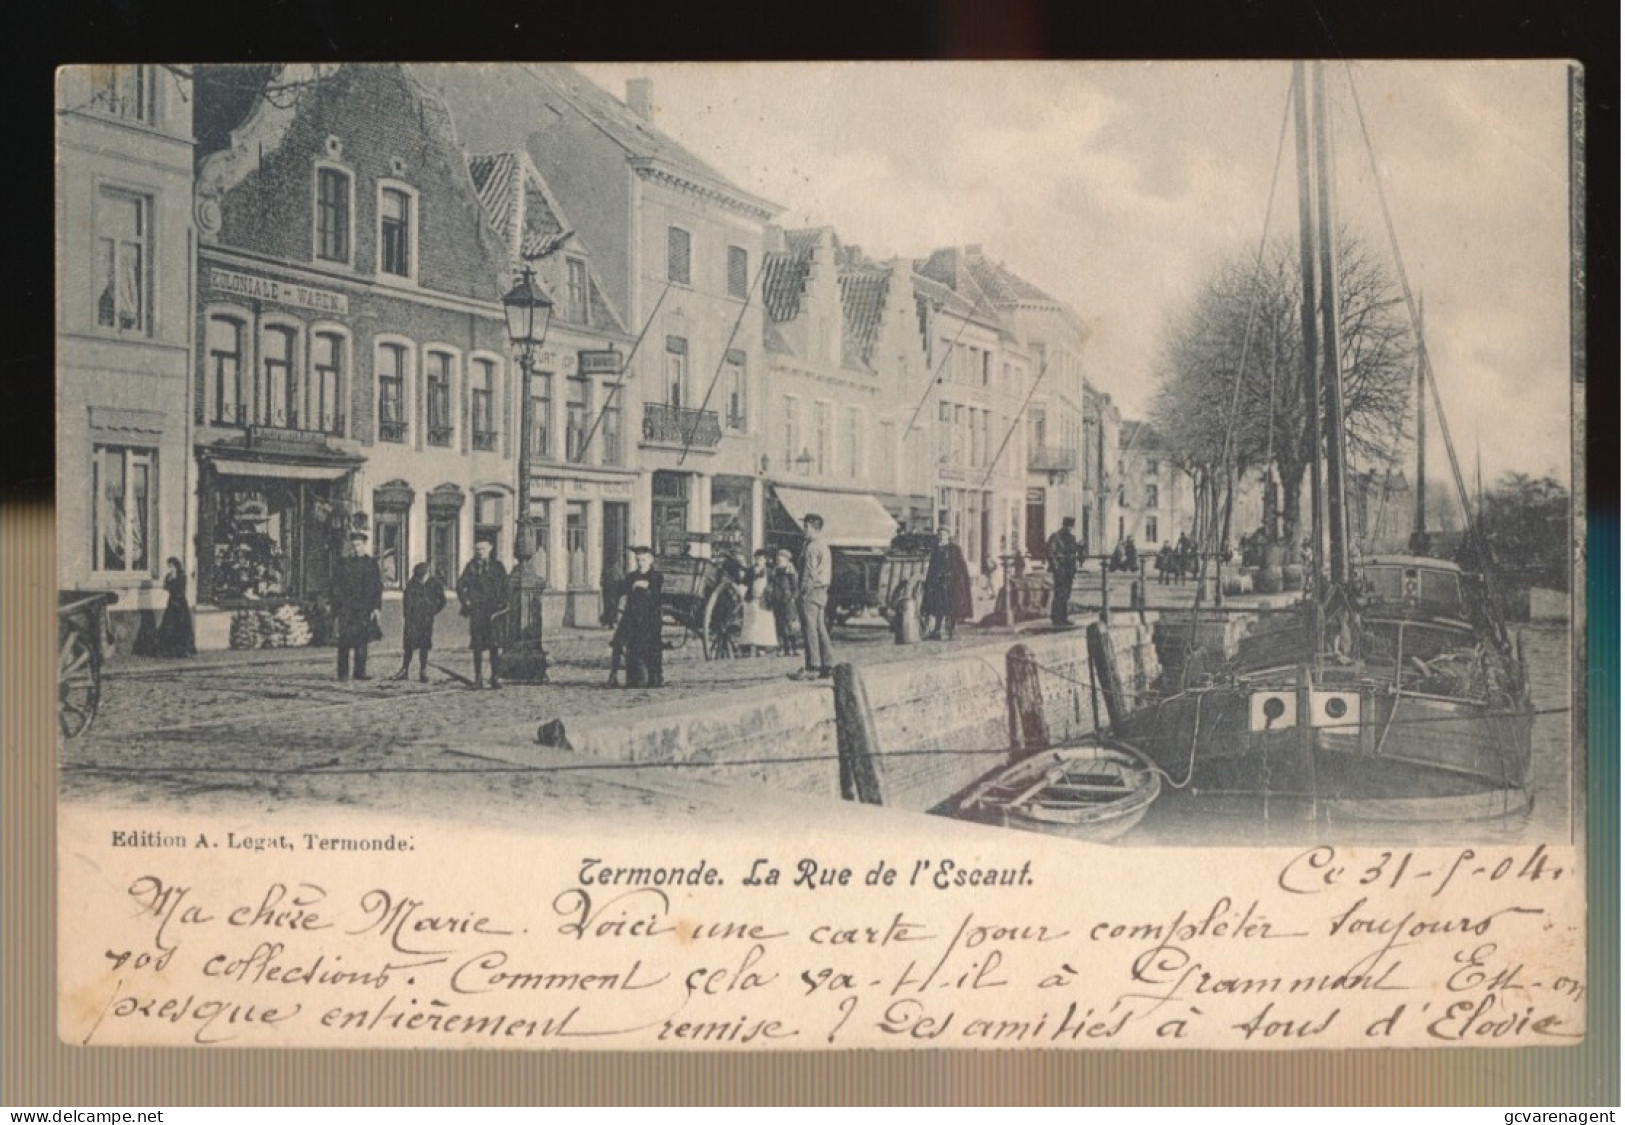 KOLONIALE - WAREN.
Edition A. Legat, Termonde.
Termonde. La Rue de l'Escaut.
Ce 31-5-04.
Ma chère Marie. Voici une carte pour complétér toujours
vos collections. Comment cela va-t-il à Grammont Est-on
presque entièrement remise? Des amitiés à tous d'Elodie
www.delcampe.net
gcvarenagent